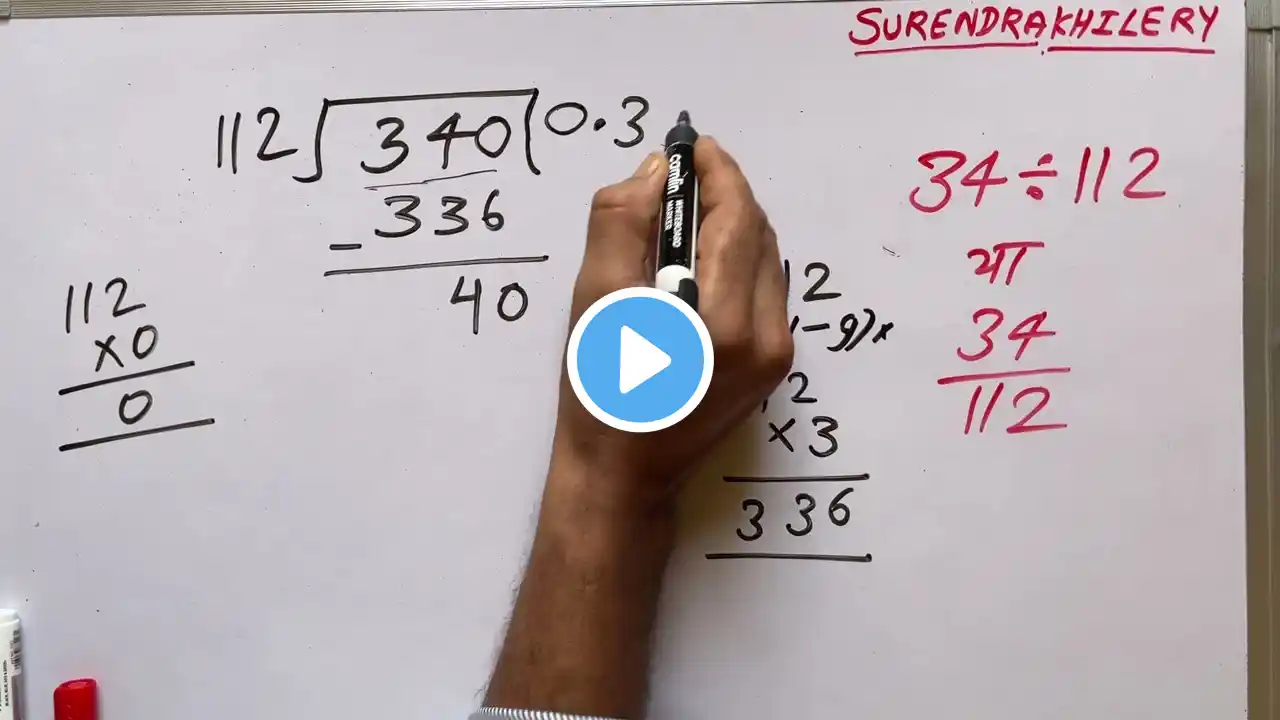 SURENDRAKHILERY
112 340 0.3
- 336
40
112
×0
0
×3
336
34÷112
या
34
112
camlin
WHITEBOARD
MARKER